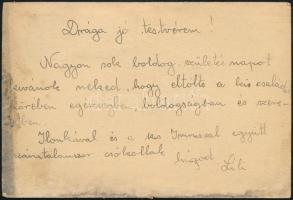 Drága jó testvérem!
Nagyon sok boldog születés napot
kivánok neked, hogy eltölts a kis család
körében egészségben, boldogságban és szere-
tben.
Ilonkával és a kis Imrussal együtt
számtalanszor csókollak húgod
Lili